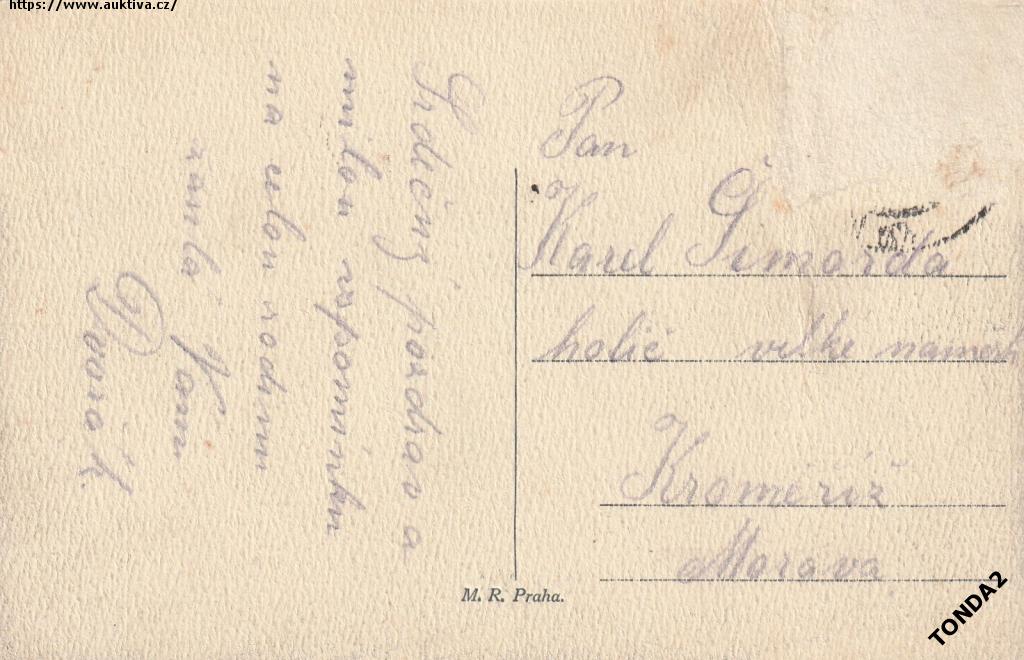 https://www.auktiva.cz/
Srdečný pozdrav a
milou vzpomínku
na celou rodinu
Vám
Dvořák.
Pan
Karel
holič velké náměstí
Kroměříž
Morava
M. R. Praha.
TONDA2